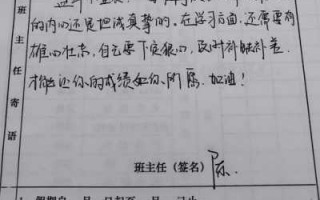 的内心还是坦诚真挚的。在学习方面，还需要有
雄心壮志，自己要下定狠心，及时补缺补差，
才能还你的成绩如你所愿。加油！
班主任寄语
班主任（签名） 陈